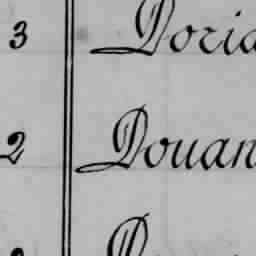 3 Doria
2 Douan